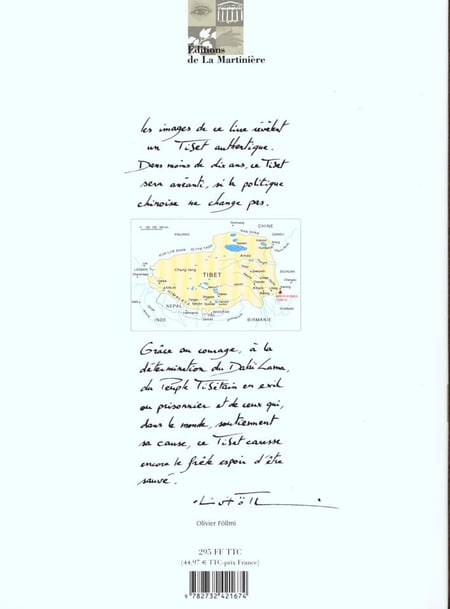 Éditions
de La Martinière
les images de ce livre révèlent
un Tibet authentique.
Dans moins de dix ans, ce Tibet
sera anéanti, si la politique
chinoise ne change pas.
CHINE
TIBET
NEPAL
INDE
BHOUTAN
BIRMANIE
Grâce au courage, à la
détermination du Dalaï Lama,
du Peuple Tibétain en exil
ou prisonnier et de ceux qui,
dans le monde, soutiennent
sa cause, ce Tibet caresse
encore le frêle espoir d'être
sauvé.
Olivier Föllmi
295 FF TTC
(44.97 € TTC-prix France)
9 782732 421674